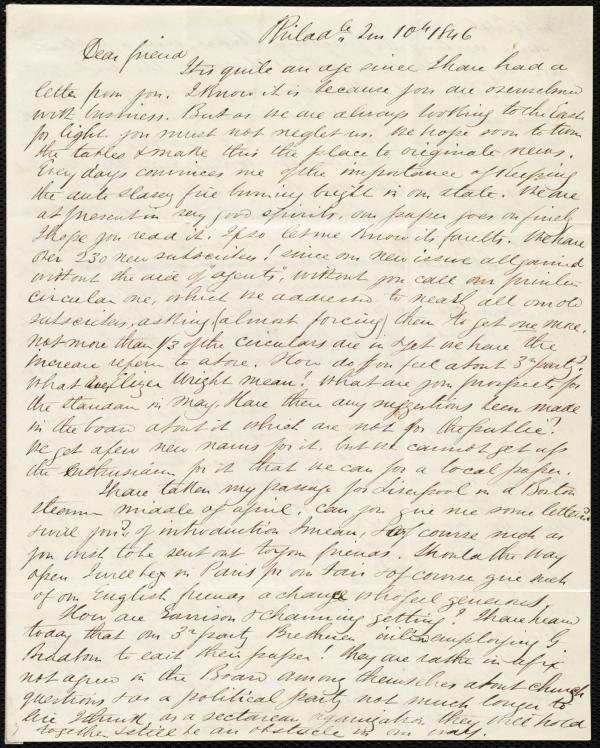 Philada 2m 10th 1846
Dear friend
It is quite an age since I have had a
letter from you. I know it is because you are overwhelmed
with business. But as we are always looking to the East
for light you must not neglect us. We hope soon to turn
the tables & make this the place to originate news.
Every days convinces me of the importance of keeping
the anti slavery fire burning bright in our state. We are
at present in very good spirits, our paper goes on finely
I hope you read it. If so, let me know its faults. We have
over 230 new subscribers! since our new issue all gained
without the aid of agents, without you call our printed
circular one, which we addressed to nearly all our old
subscribers, asking (almost forcing) them to get one more.
not more than 1/3 of the circulars are in & yet we have the
increase referred to above. How do you feel about 3rd party?
What does Elizur Wright mean? What are your prospects for
the Standard in May. Have there any suggestions been made
in the board about it which are not for the public?
We get a few new names for it, but we cannot get up
the enthusiasm for it that we can for a local paper.
I have taken my passage for Liverpool in a Boston
steamer middle of April. Can you give me some letters?
& will you? of introduction I mean, & of course such as
you wish to be sent out to your friends. Should the way
open I will be in Paris for our Fair & of course give such
of our English friends a chance who feel generous.
How are Garrison & Channing getting? I have heard
today that our 3rd party Brethren employing G.
Bradburn to edit their paper! they are rather in a fix
not agreed in the Board among themselves about church
questions & as a political party not much longer to
live I think, as a sectarian organization they will hold
together & still be an obstacle in our way.